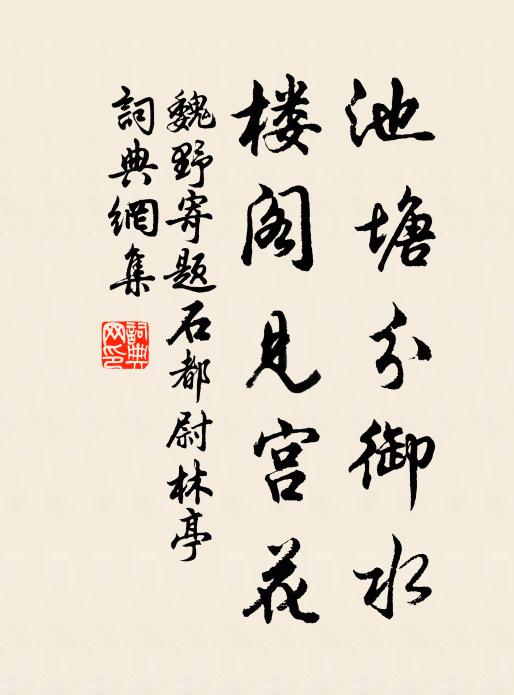 池塘分御水
楼阁见宫花
魏野寄题石都尉林亭
詞典網集
詞典网印